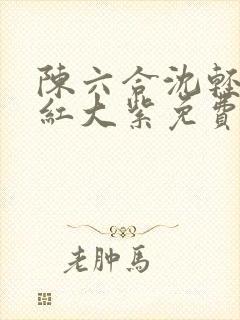 陳六合沈輕
紅大紫免費
老肿馬